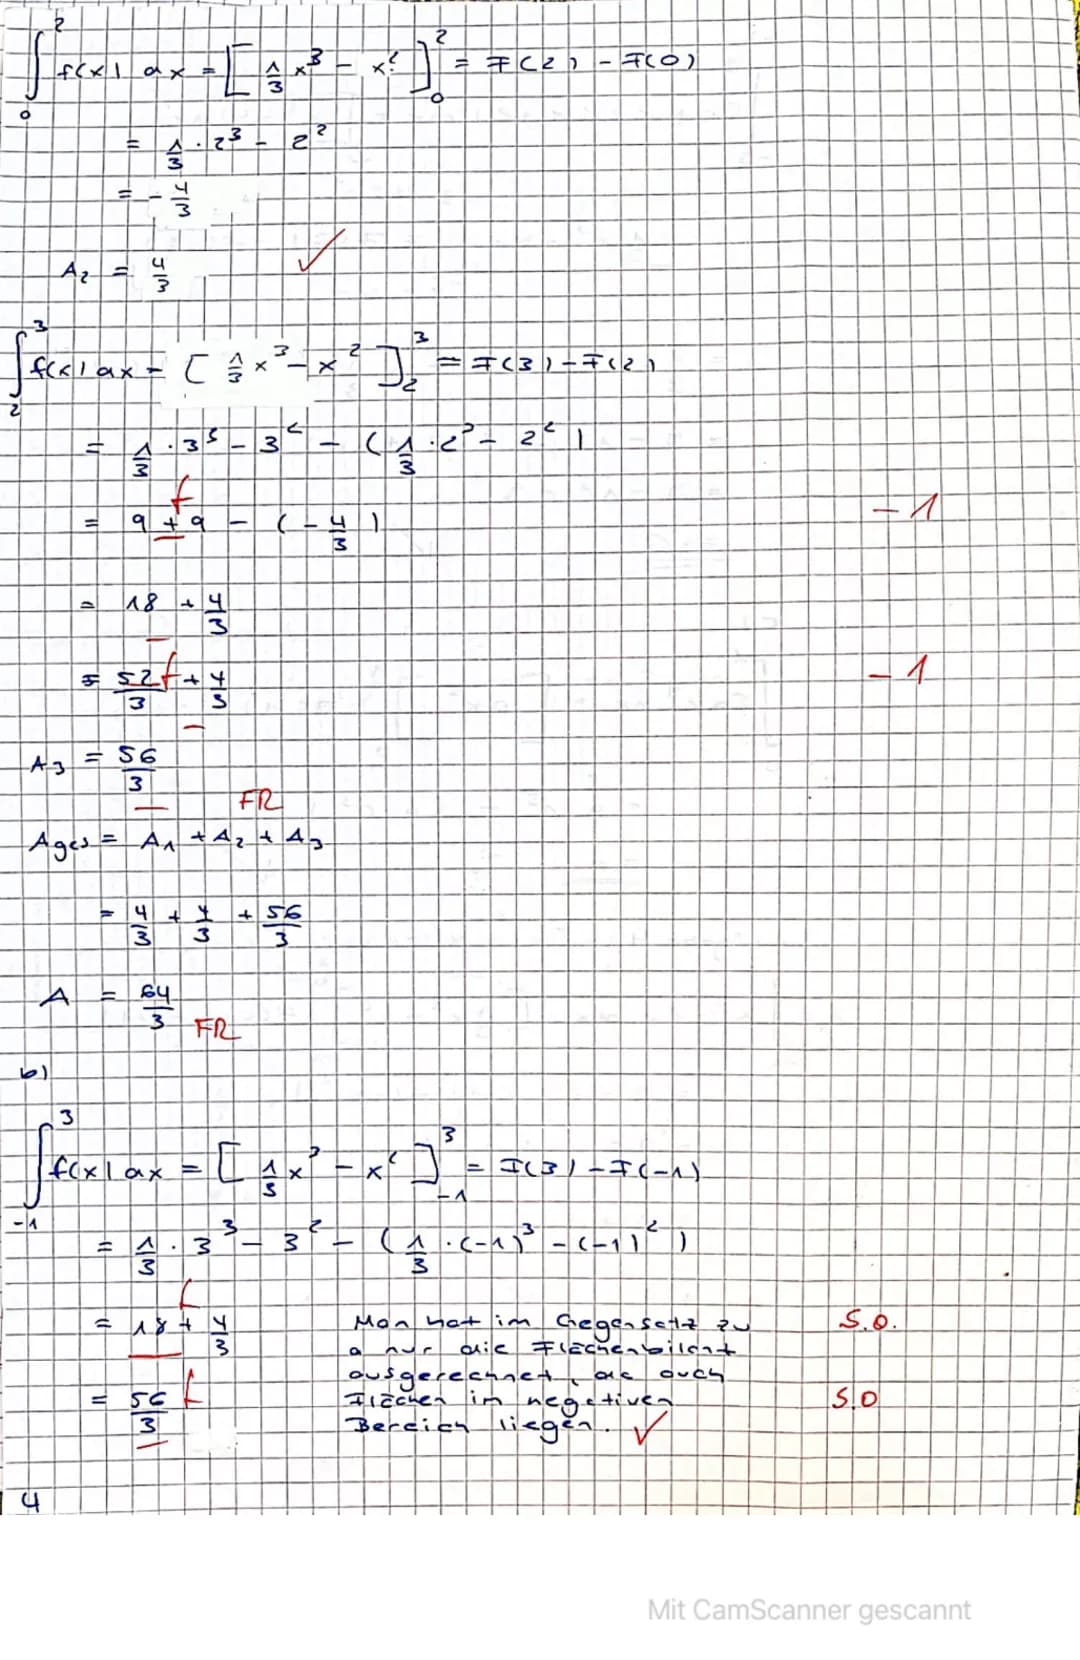 ∫₀² f(x) dx = [ 1/3 x³ - x² ]₀² = F(2) - F(0)
= 1/3 · 2³ - 2²
= - 4/3
A₂ = 4/3 ✓
∫₂³ f(x) dx = [ 1/3 x³ - x² ]₂³ = F(3) - F(2)
= 1/3 · 3³ - 3² - ( 1/3 · 2³ - 2² )
f
= 9 + 9 - ( - 4/3 ) -1
= 18 + 4/3
= 52/3 f + 4/3 -1
A₃ = 56/3
FR
Ages = A₁ + A₂ + A₃
= 4/3 + 4/3 + 56/3
A = 64/3 FR
b)
∫₋₁³ f(x) dx = [ 1/3 x³ - x² ]₋₁³ = F(3) - F(-1)
= 1/3 · 3³ - 3² - ( 1/3 · (-1)³ - (-1)² )
f
= 18 + 4/3
= 56/3 f
Man hat im Gegensatz zu S.O.
a nur die Flächenbilant
ausgerechnet, da auch
Flächen im negativen S.O
Bereich liegen. ✓
4
Mit CamScanner gescannt